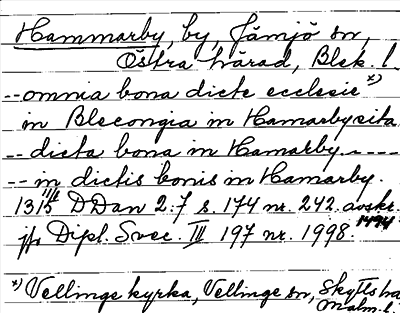 Hammarby, by, Jämjö sn,
Östra härad, Blek. l.
-- omnia bona dicte ecclesie x)
in Blecongia in Hamarby sita
-- dicta bona in Hamarby -----
-- in dictis bonis in Hamarby.
1315 11/4 DDan 2:7 s. 174 nr. 242. avskr. 1494
jfr Dipl. Svec. III 197 nr. 1998.
x) Vellinge kyrka, Vellinge sn, Skytts hd
Malm. l.